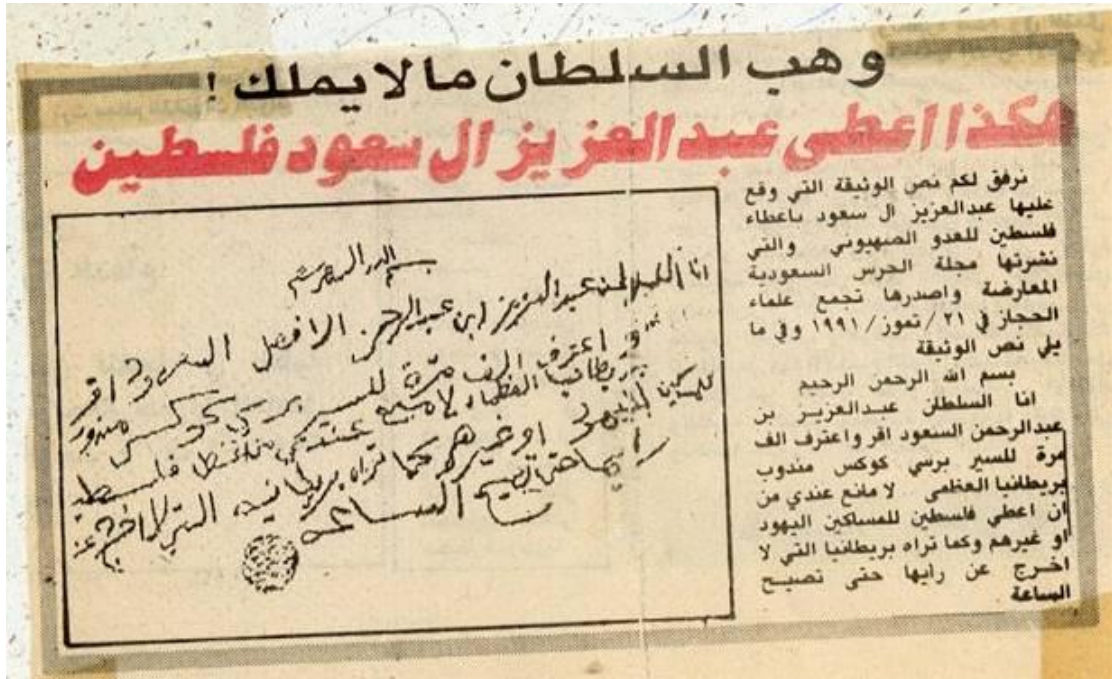 وهب السلطان مالايملك !
هكذا اعطى عبدالعزيز ال سعود فلسطين
نرفق لكم نص الوثيقة التي وقع
عليها عبدالعزيز ال سعود باعطاء
فلسطين للعدو الصهيوني والتي
نشرتها مجلة الحرس السعودية
المعارضة واصدرها تجمع علماء
الحجاز في ٢١/تموز/١٩٩١ وفي ما
يلي نص الوثيقة
بسم الله الرحمن الرحيم
انا السلطان عبدالعزيز بن
عبدالرحمن السعود اقر واعترف الف
مرة للسير برسي كوكس مندوب
بريطانيا العظمى لا مانع عندي من
ان اعطي فلسطين للمساكين اليهود
او غيرهم وكما تراه بريطانيا التي لا
اخرج عن رايها حتى تصيح
الساعة
بسم الله الرحمن الرحيم
انا السلطان عبدالعزيز ابن عبدالرحمن السعود اقر
واعترف الف مرة للسير برسي كوكس مندوب
بريطانيا العظمى لا مانع عندي فلسطين
لليهود او غيرهم كما تراه بريطانيا التي لا اخرج عن
رايها حتى تصيح الساعة